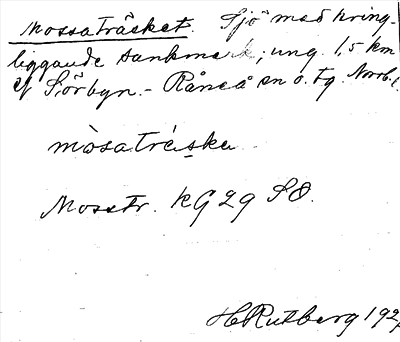 Mossaträsket. Sjö med kring-
liggande sankmark; ung. 1,5 km
Sörbyn. - Råneå sn o. tg. Norrb. l.
mòsatrḗska
Mosstr. KG 29 SO.
H Rutberg 192